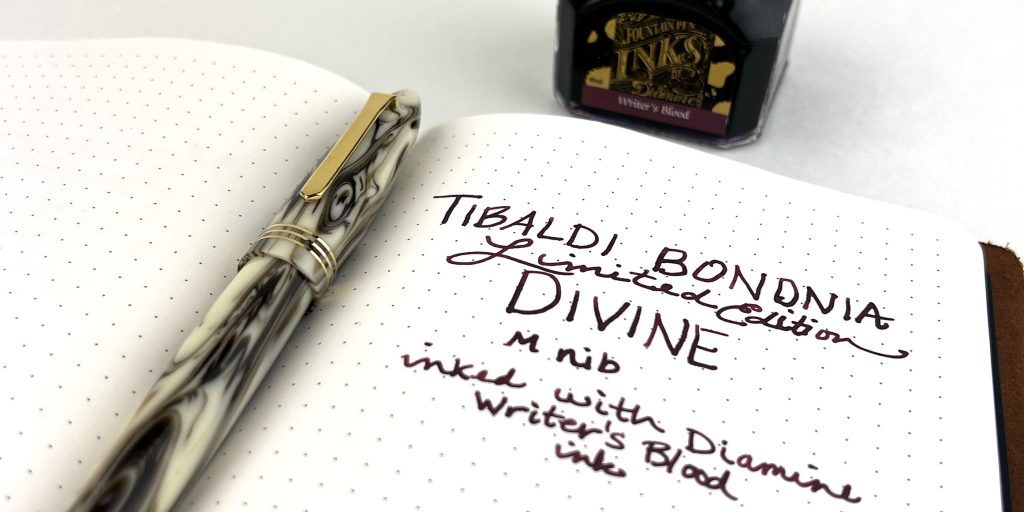 FOUNTAIN PEN
INKS
Diamine
Writer's Blood
TIBALDI BONONIA
Limited Edition
DIVINE
M nib
inked with Diamine
Writer's Blood
ink